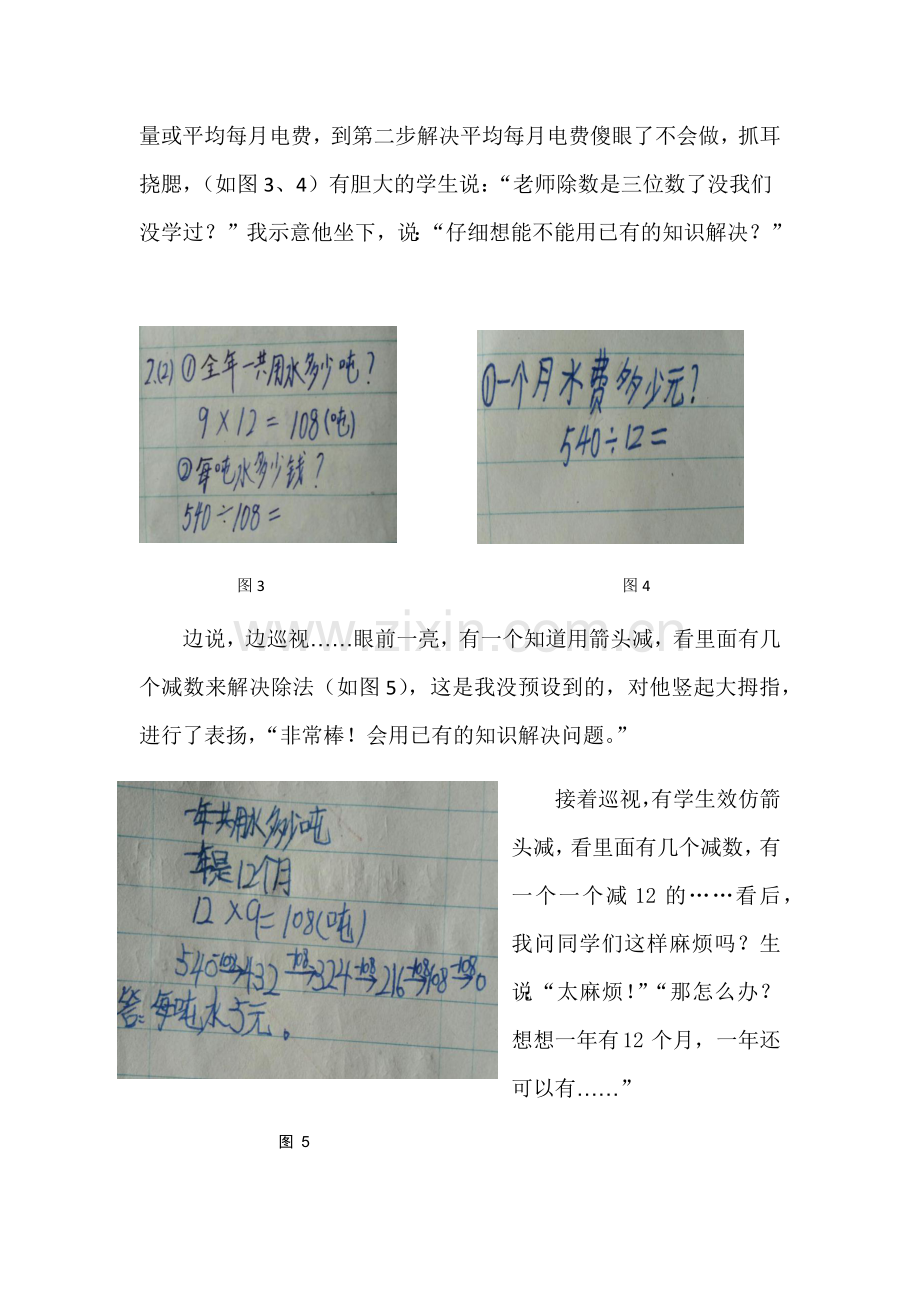 量或平均每月电费，到第二步解决平均每月电费傻眼了不会做，抓耳
挠腮，（如图3、4）有胆大的学生说：“老师除数是三位数了没我们
没学过？”我示意他坐下，说：“仔细想能不能用已有的知识解决？”
2.(2)①全年一共用水多少吨？
9×12=108(吨)
②每吨水多少钱？
540÷108=
①一个月水费多少元？
540÷12=
图3
图4
www.zixin.com.cn
边说，边巡视……眼前一亮，有一个知道用箭头减，看里面有几
个减数来解决除法（如图5），这是我没预设到的，对他竖起大拇指，
进行了表扬，“非常棒！会用已有的知识解决问题。”
一年共用水多少吨
一年是12个月
12×9=108(吨)
540-108→432-108→324-108→216-108→108-108→0
答：每吨水5元。
接着巡视，有学生效仿箭
头减，看里面有几个减数，有
一个一个减12的……看后，
我问同学们这样麻烦吗？生
说：“太麻烦！”“那怎么办？
想想一年有12个月，一年还
可以有……”
图 5